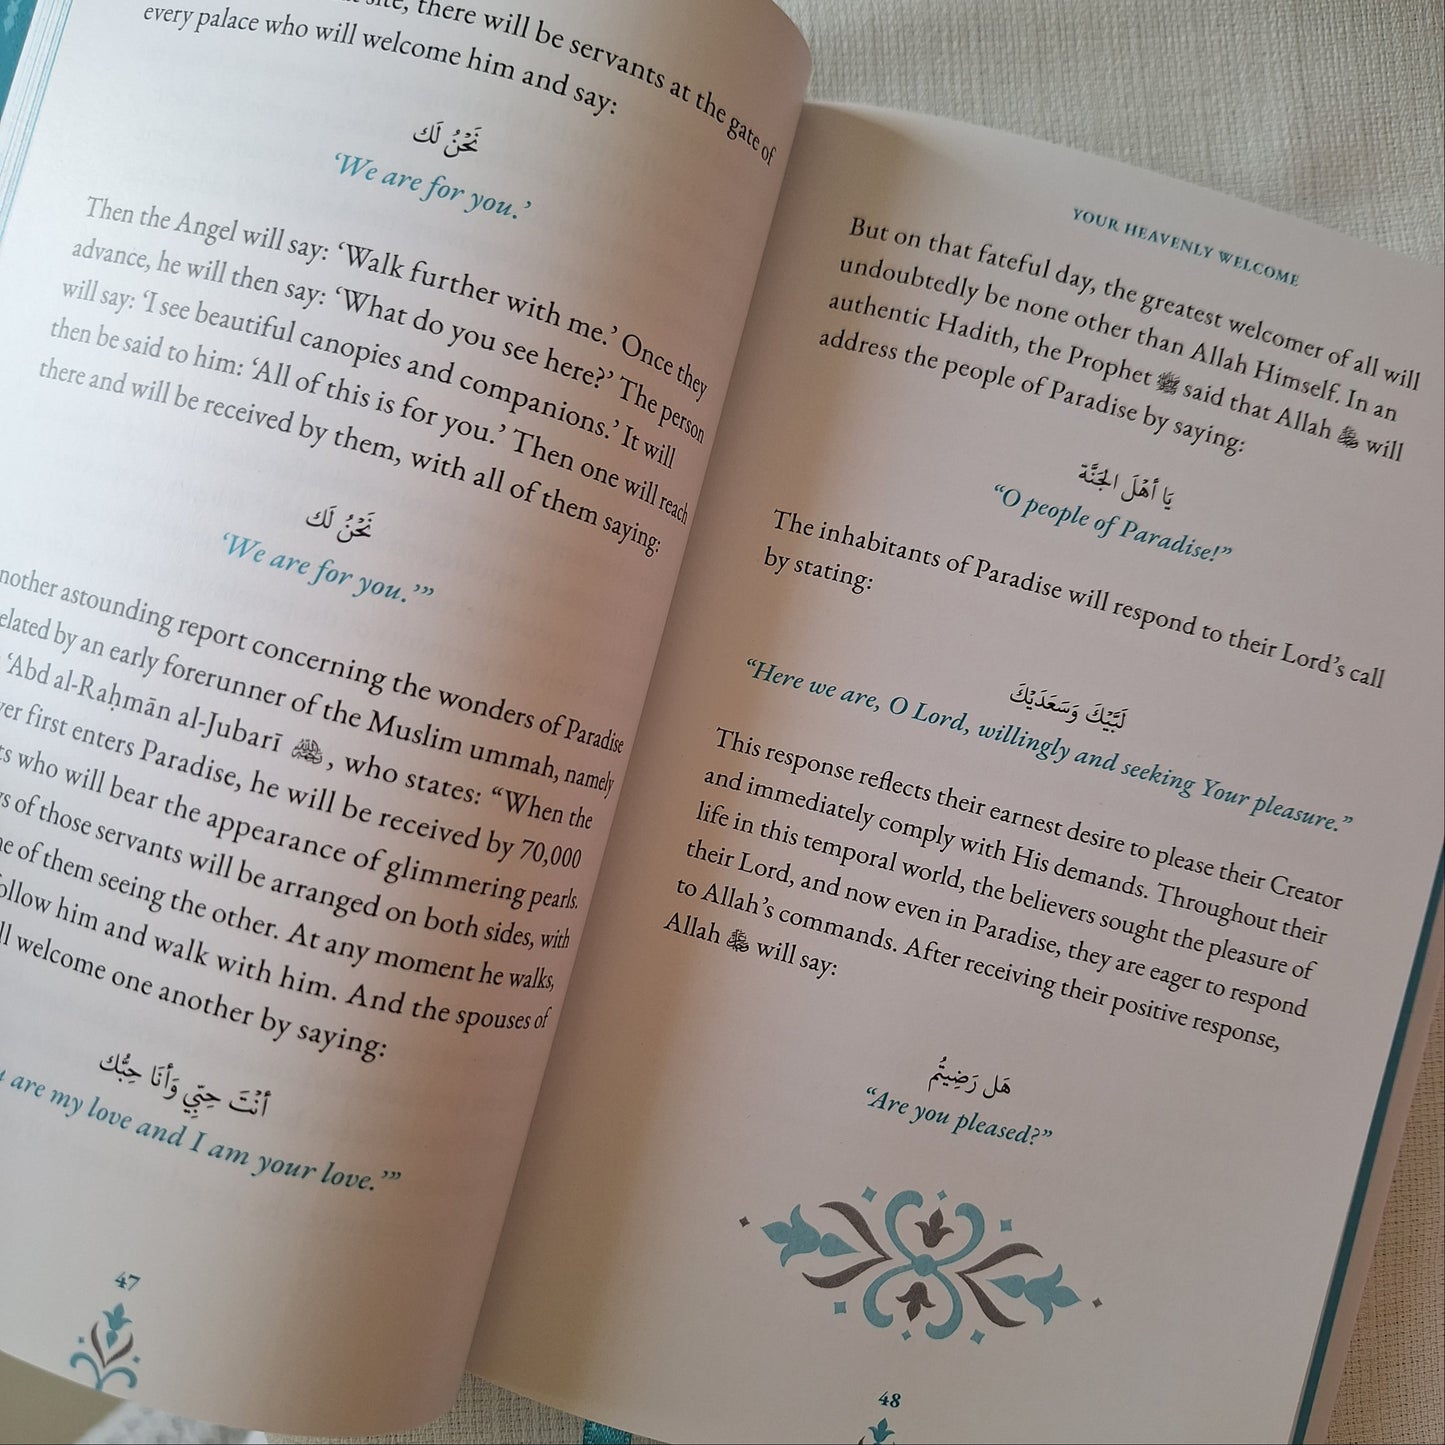 there will be servants at the gate of
every palace who will welcome him and say:
نَحْنُ لَك
‘We are for you.’
Then the Angel will say: ‘Walk further with me.’ Once they
advance, he will then say: ‘What do you see here?’ The person
will say: ‘I see beautiful canopies and companions.’ It will
then be said to him: ‘All of this is for you.’ Then one will reach
there and will be received by them, with all of them saying:
نَحْنُ لَك
‘We are for you.’”
astounding report concerning the wonders of Paradise
by an early forerunner of the Muslim ummah, namely
‘Abd al-Raḥmān al-Jubarī, who states: “When the
first enters Paradise, he will be received by 70,000
who will bear the appearance of glimmering pearls.
of those servants will be arranged on both sides, with
of them seeing the other. At any moment he walks,
him and walk with him. And the spouses of
welcome one another by saying:
أَنْتَ حِبِّي وَأَنَا حِبُّك
are my love and I am your love.’”
47
YOUR HEAVENLY WELCOME
But on that fateful day, the greatest welcomer of all will
undoubtedly be none other than Allah Himself. In an
authentic Hadith, the Prophet ﷺ said that Allah ﷻ will
address the people of Paradise by saying:
يَا أَهْلَ الْجَنَّة
“O people of Paradise!”
The inhabitants of Paradise will respond to their Lord’s call
by stating:
لَبَّيْكَ وَسَعَدَيْكَ
“Here we are, O Lord, willingly and seeking Your pleasure.”
This response reflects their earnest desire to please their Creator
and immediately comply with His demands. Throughout their
life in this temporal world, the believers sought the pleasure of
their Lord, and now even in Paradise, they are eager to respond
to Allah’s commands. After receiving their positive response,
Allah ﷻ will say:
هَل رَضِيتُم
“Are you pleased?”
48